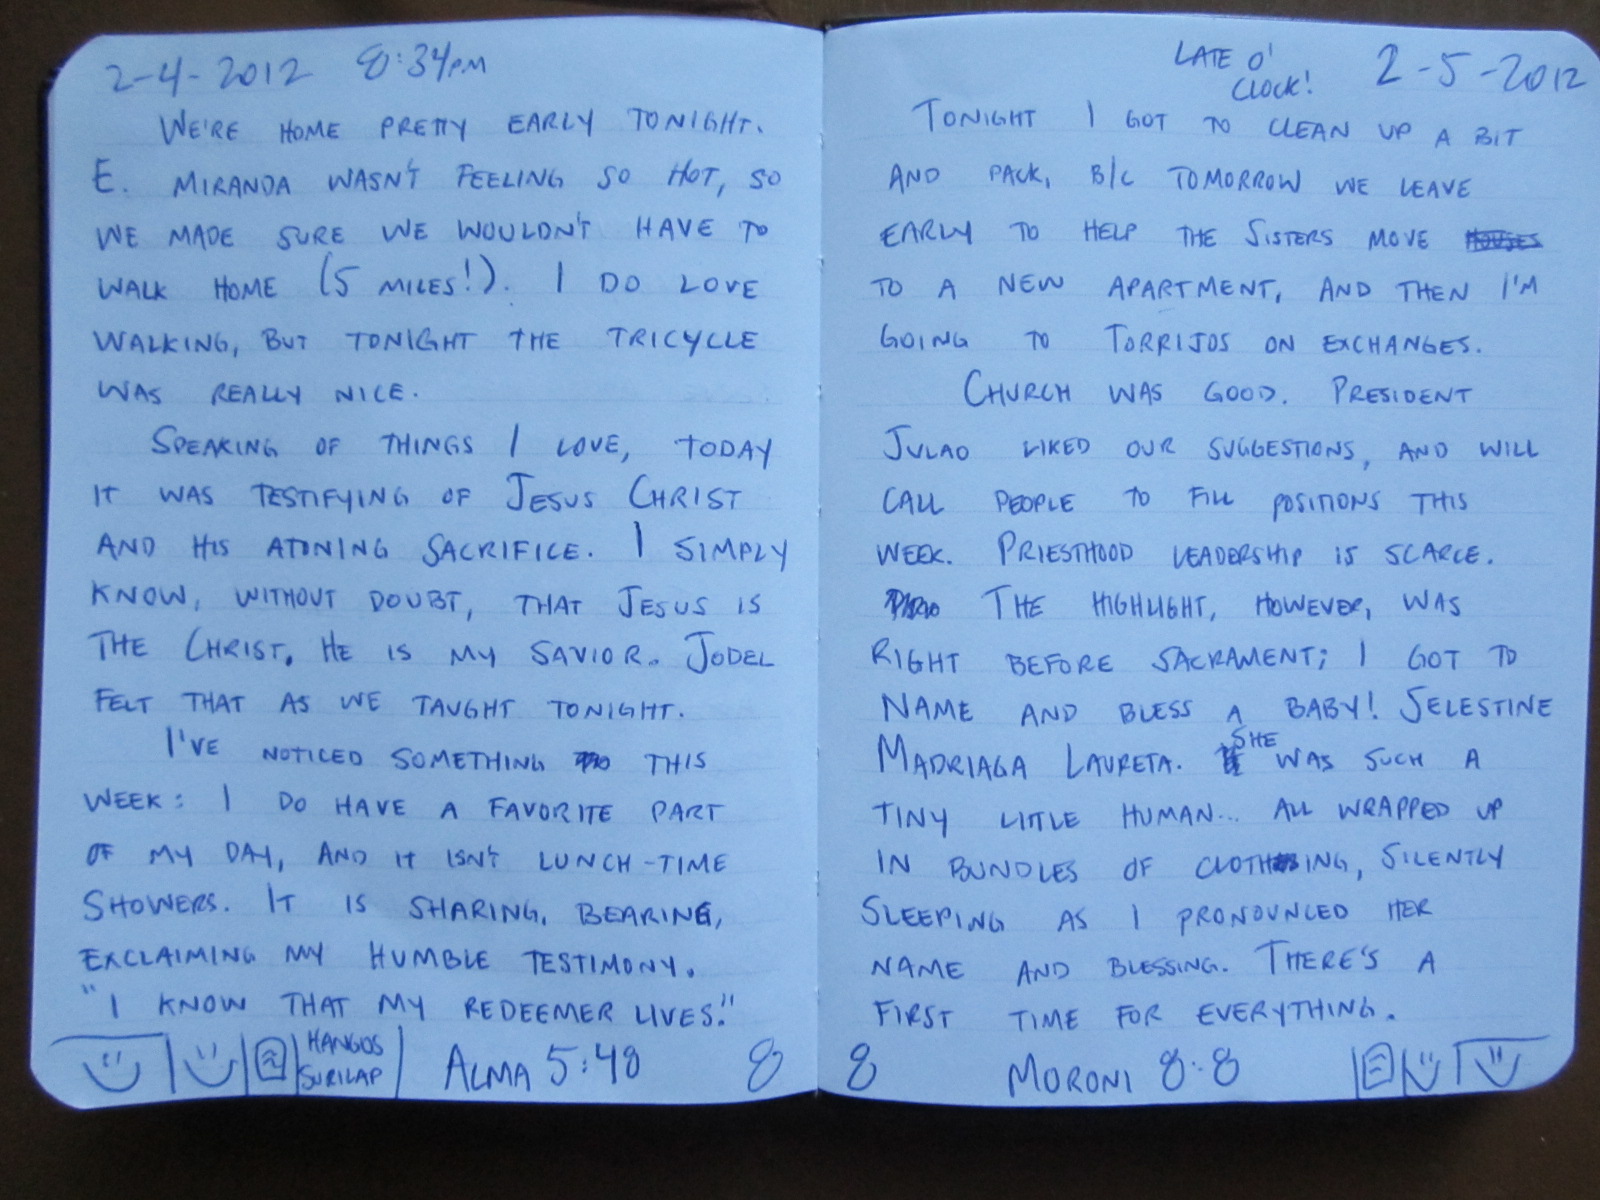 2-4-2012 8:34PM
WE'RE HOME PRETTY EARLY TONIGHT.
E. MIRANDA WASN'T FEELING SO HOT, SO
WE MADE SURE WE WOULDN'T HAVE TO
WALK HOME (5 MILES!). I DO LOVE
WALKING, BUT TONIGHT THE TRICYCLE
WAS REALLY NICE.
SPEAKING OF THINGS I LOVE, TODAY
IT WAS TESTIFYING OF JESUS CHRIST
AND HIS ATONING SACRIFICE. I SIMPLY
KNOW, WITHOUT DOUBT, THAT JESUS IS
THE CHRIST. HE IS MY SAVIOR. JODEL
FELT THAT AS WE TAUGHT TONIGHT.
I'VE NOTICED SOMETHING THIS
WEEK: I DO HAVE A FAVORITE PART
OF MY DAY, AND IT ISN'T LUNCH-TIME
SHOWERS. IT IS SHARING, BEARING,
EXCLAIMING MY HUMBLE TESTIMONY.
"I KNOW THAT MY REDEEMER LIVES."
HANGOS
SURILAP
ALMA 5:48 8
LATE O'
CLOCK! 2-5-2012
TONIGHT I GOT TO CLEAN UP A BIT
AND PACK, B/C TOMORROW WE LEAVE
EARLY TO HELP THE SISTERS MOVE HOUSES
TO A NEW APARTMENT, AND THEN I'M
GOING TO TORRIJOS ON EXCHANGES.
CHURCH WAS GOOD. PRESIDENT
JULAO LIKED OUR SUGGESTIONS, AND WILL
CALL PEOPLE TO FILL POSITIONS THIS
WEEK. PRIESTHOOD LEADERSHIP IS SCARCE.
THE HIGHLIGHT, HOWEVER, WAS
RIGHT BEFORE SACRAMENT; I GOT TO
NAME AND BLESS A BABY! SELESTINE
MADRIAGA LAURETA. SHE WAS SUCH A
TINY LITTLE HUMAN... ALL WRAPPED UP
IN BUNDLES OF CLOTHING, SILENTLY
SLEEPING AS I PRONOUNCED HER
NAME AND BLESSING. THERE'S A
FIRST TIME FOR EVERYTHING.
8 MORONI 8:8